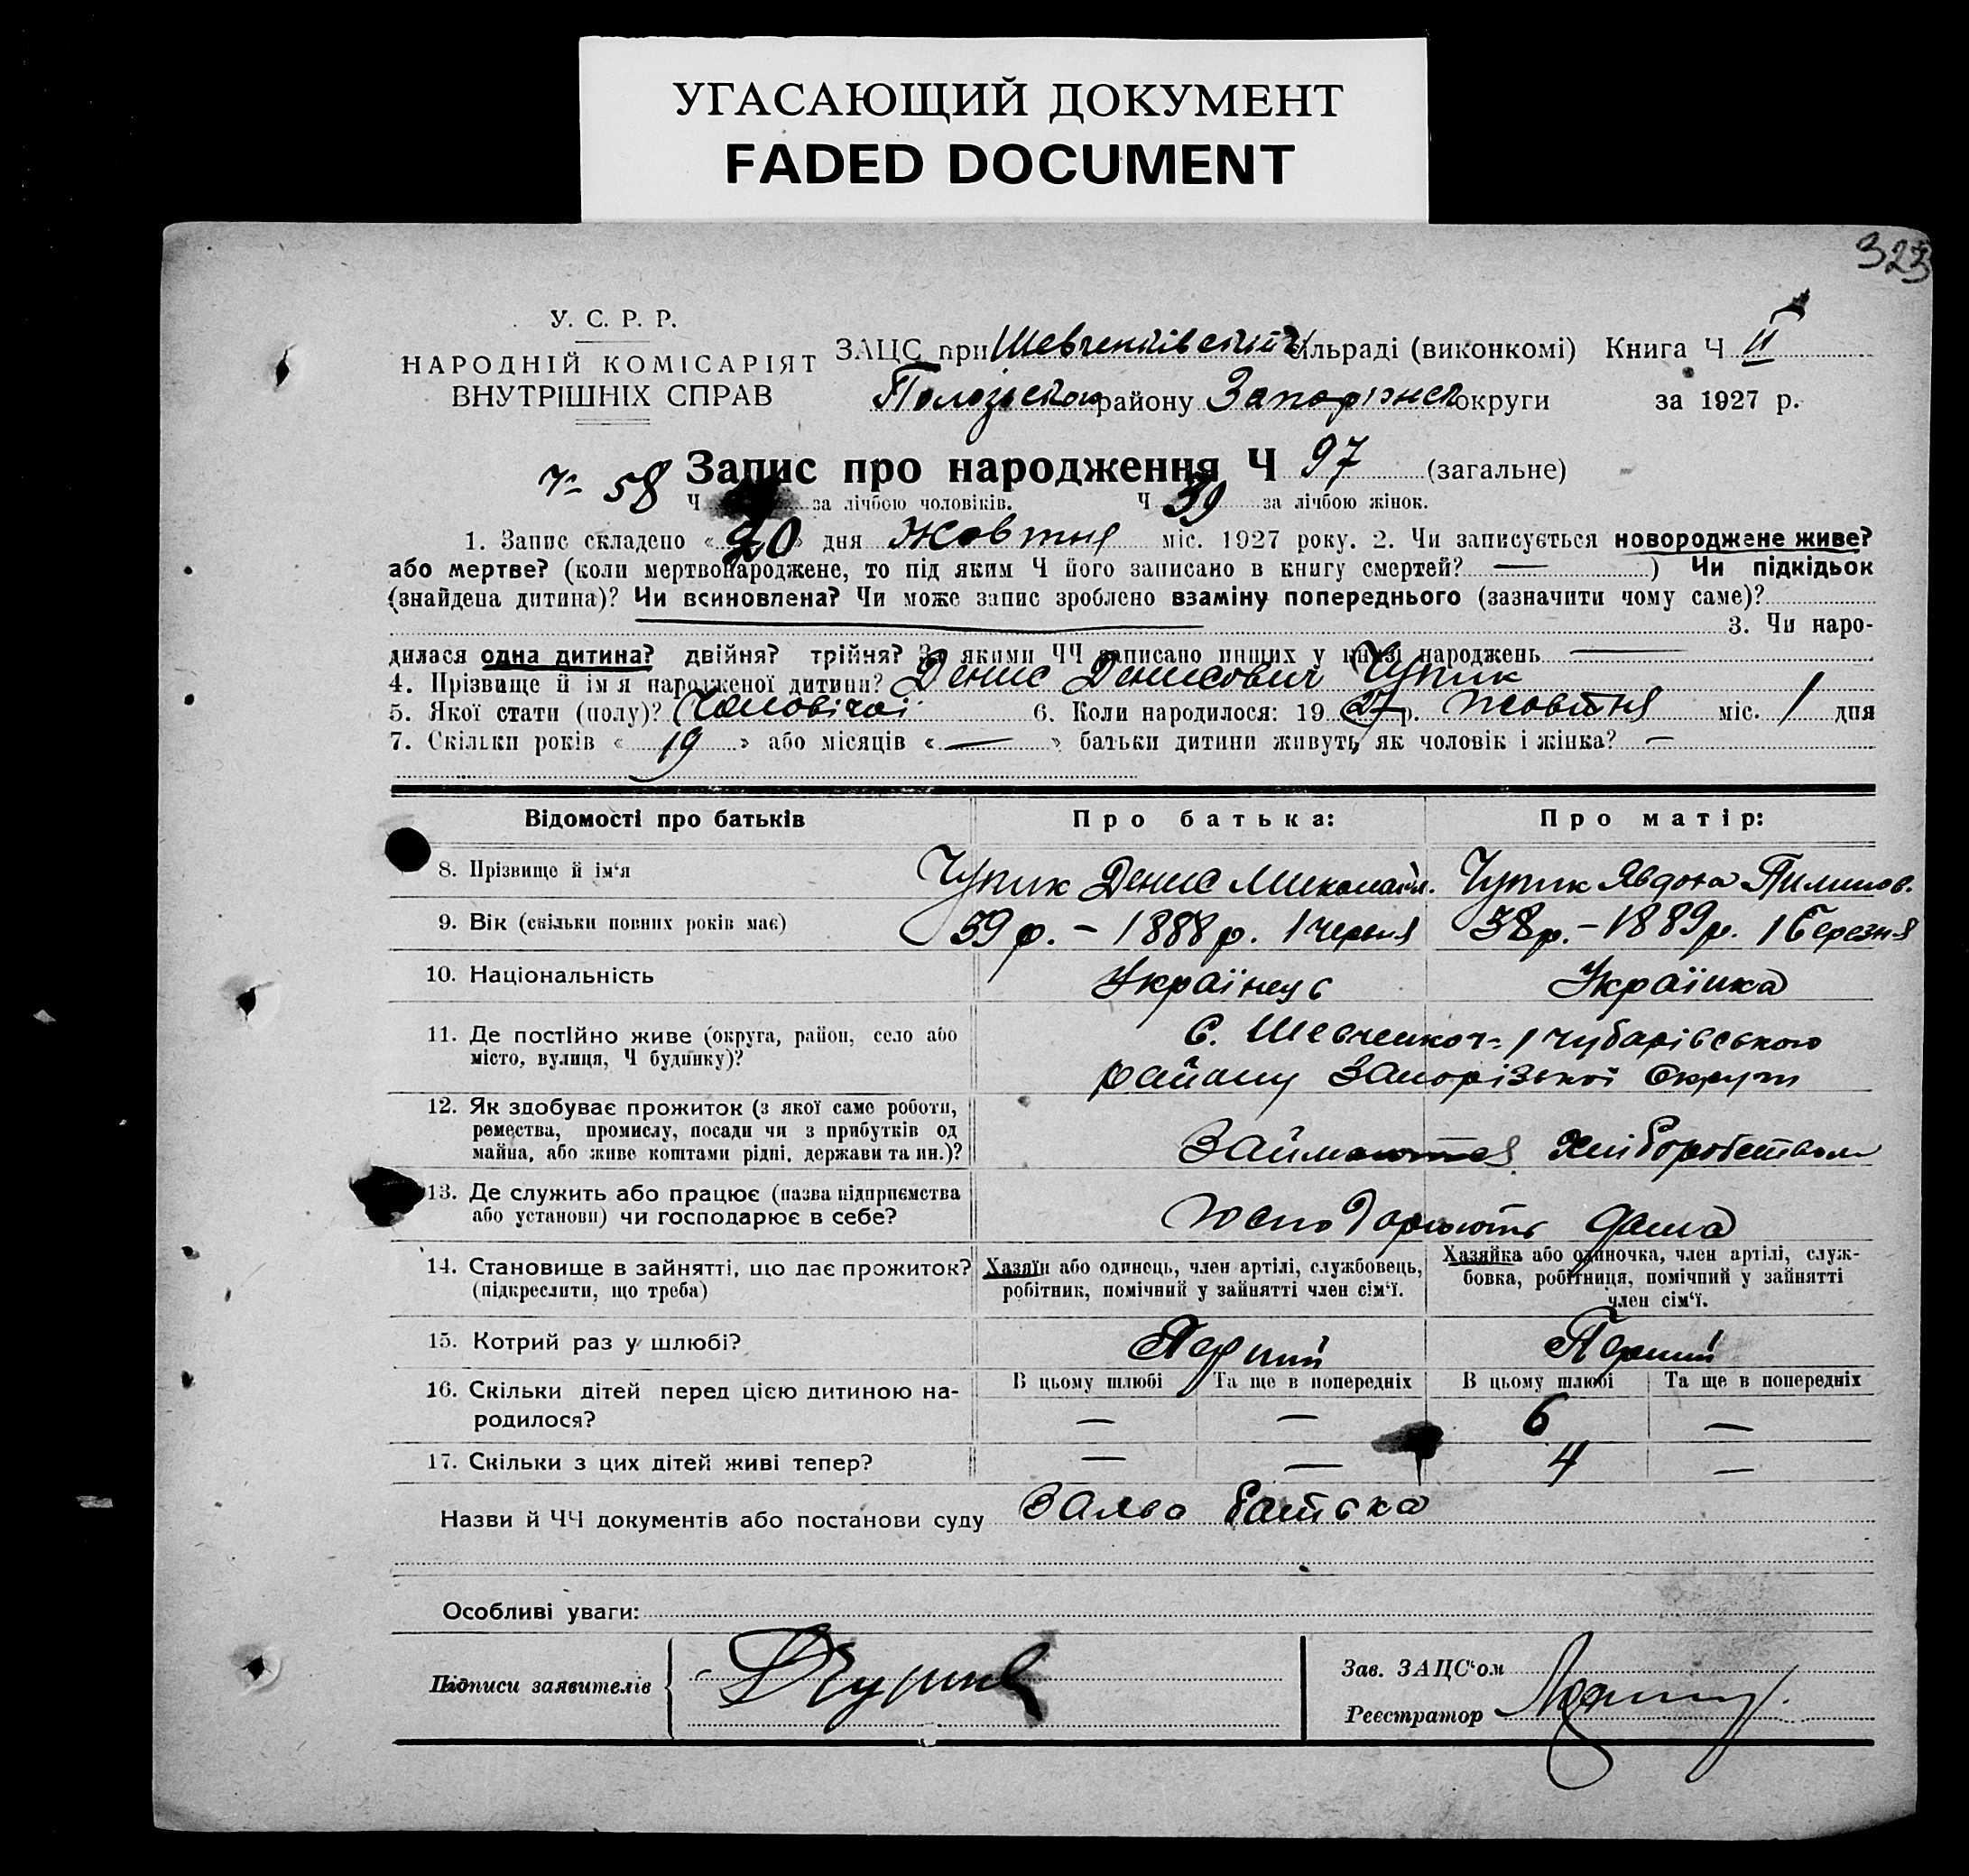 УГАСАЮЩИЙ ДОКУМЕНТ
FADED DOCUMENT
323
У. С. Р. Р.
НАРОДНІЙ КОМІСАРІЯТ
ВНУТРІШНІХ СПРАВ
ЗАЦС при Шевченківській сільраді (виконкомі) Книга Ч II
Полозького району Запоріжск округи за 1927 р.
Запис про народження Ч 97 (загальне)
Ч- 58 Ч за лічбою чоловіків. Ч 39 за лічбою жінок.
1. Запис складено « 20 » дня Жовтня міс. 1927 року. 2. Чи записується новороджене живе?
або мертве? (коли мертвонароджене, то під яким Ч його записано в книгу смертей? — ) Чи підкідьок
(знайдена дитина)? Чи всиновлена? Чи може запис зроблено взаміну попереднього (зазначити чому саме)?
3. Чи наро-
дилася одна дитина? двійня? трійня? За якими ЧЧ записано инших у книзі народжень —
4. Прізвище й ім'я народженої дитини? Денис Денисович Чупик
5. Якої стати (полу)? Чоловічої 6. Коли народилося: 19 27 р. Жовтня міс. 1 дня
7. Скільки років « 19 » або місяців « — » батьки дитини живуть, як чоловік і жінка? —
Відомості про батьків Про батька: Про матір:
8. Прізвище й ім'я Чупик Денис Миколайл. Чупик Явдоха Пилипов.
9. Вік (скільки повних років має) 39 р. – 1888 р. 1 червня 38 р. – 1889 р. 1 березня
10. Національність Українець Українка
11. Де постійно живе (округа, район, село або
місто, вулиця, Ч будинку)?
С. Шевченко ч- 1 Чубарівського
району Запорізької Округи
12. Як здобуває прожиток (з якої саме роботи,
ремества, промислу, посади чи з прибутків од
майна, або живе коштами рідні, держави та ин.)?
Займаються Хліборобством
13. Де служить або працює (назва підприємства
або установи) чи господарює в себе?
Господарюють дома
14. Становище в зайнятті, що дає прожиток?
(підкреслити, що треба)
Хазяїн або одинець, член артілі, службовець,
робітник, помічний у зайнятті член сім'ї.
Хазяйка або одиночка, член артілі, служ-
бовка, робітниця, помічний у зайнятті
член сім'ї.
15. Котрий раз у шлюбі? Перший Перший
16. Скільки дітей перед цією дитиною на-
родилося?
В цьому шлюбі Та ще в попередніх В цьому шлюбі Та ще в попередніх
— — 6 —
17. Скільки з цих дітей живі тепер? — — 4 —
Назви й ЧЧ документів або постанови суду Заява батька
Особливі уваги:
Підписи заявителів ДЧупик
Зав. ЗАЦС'ом
Реєстратор